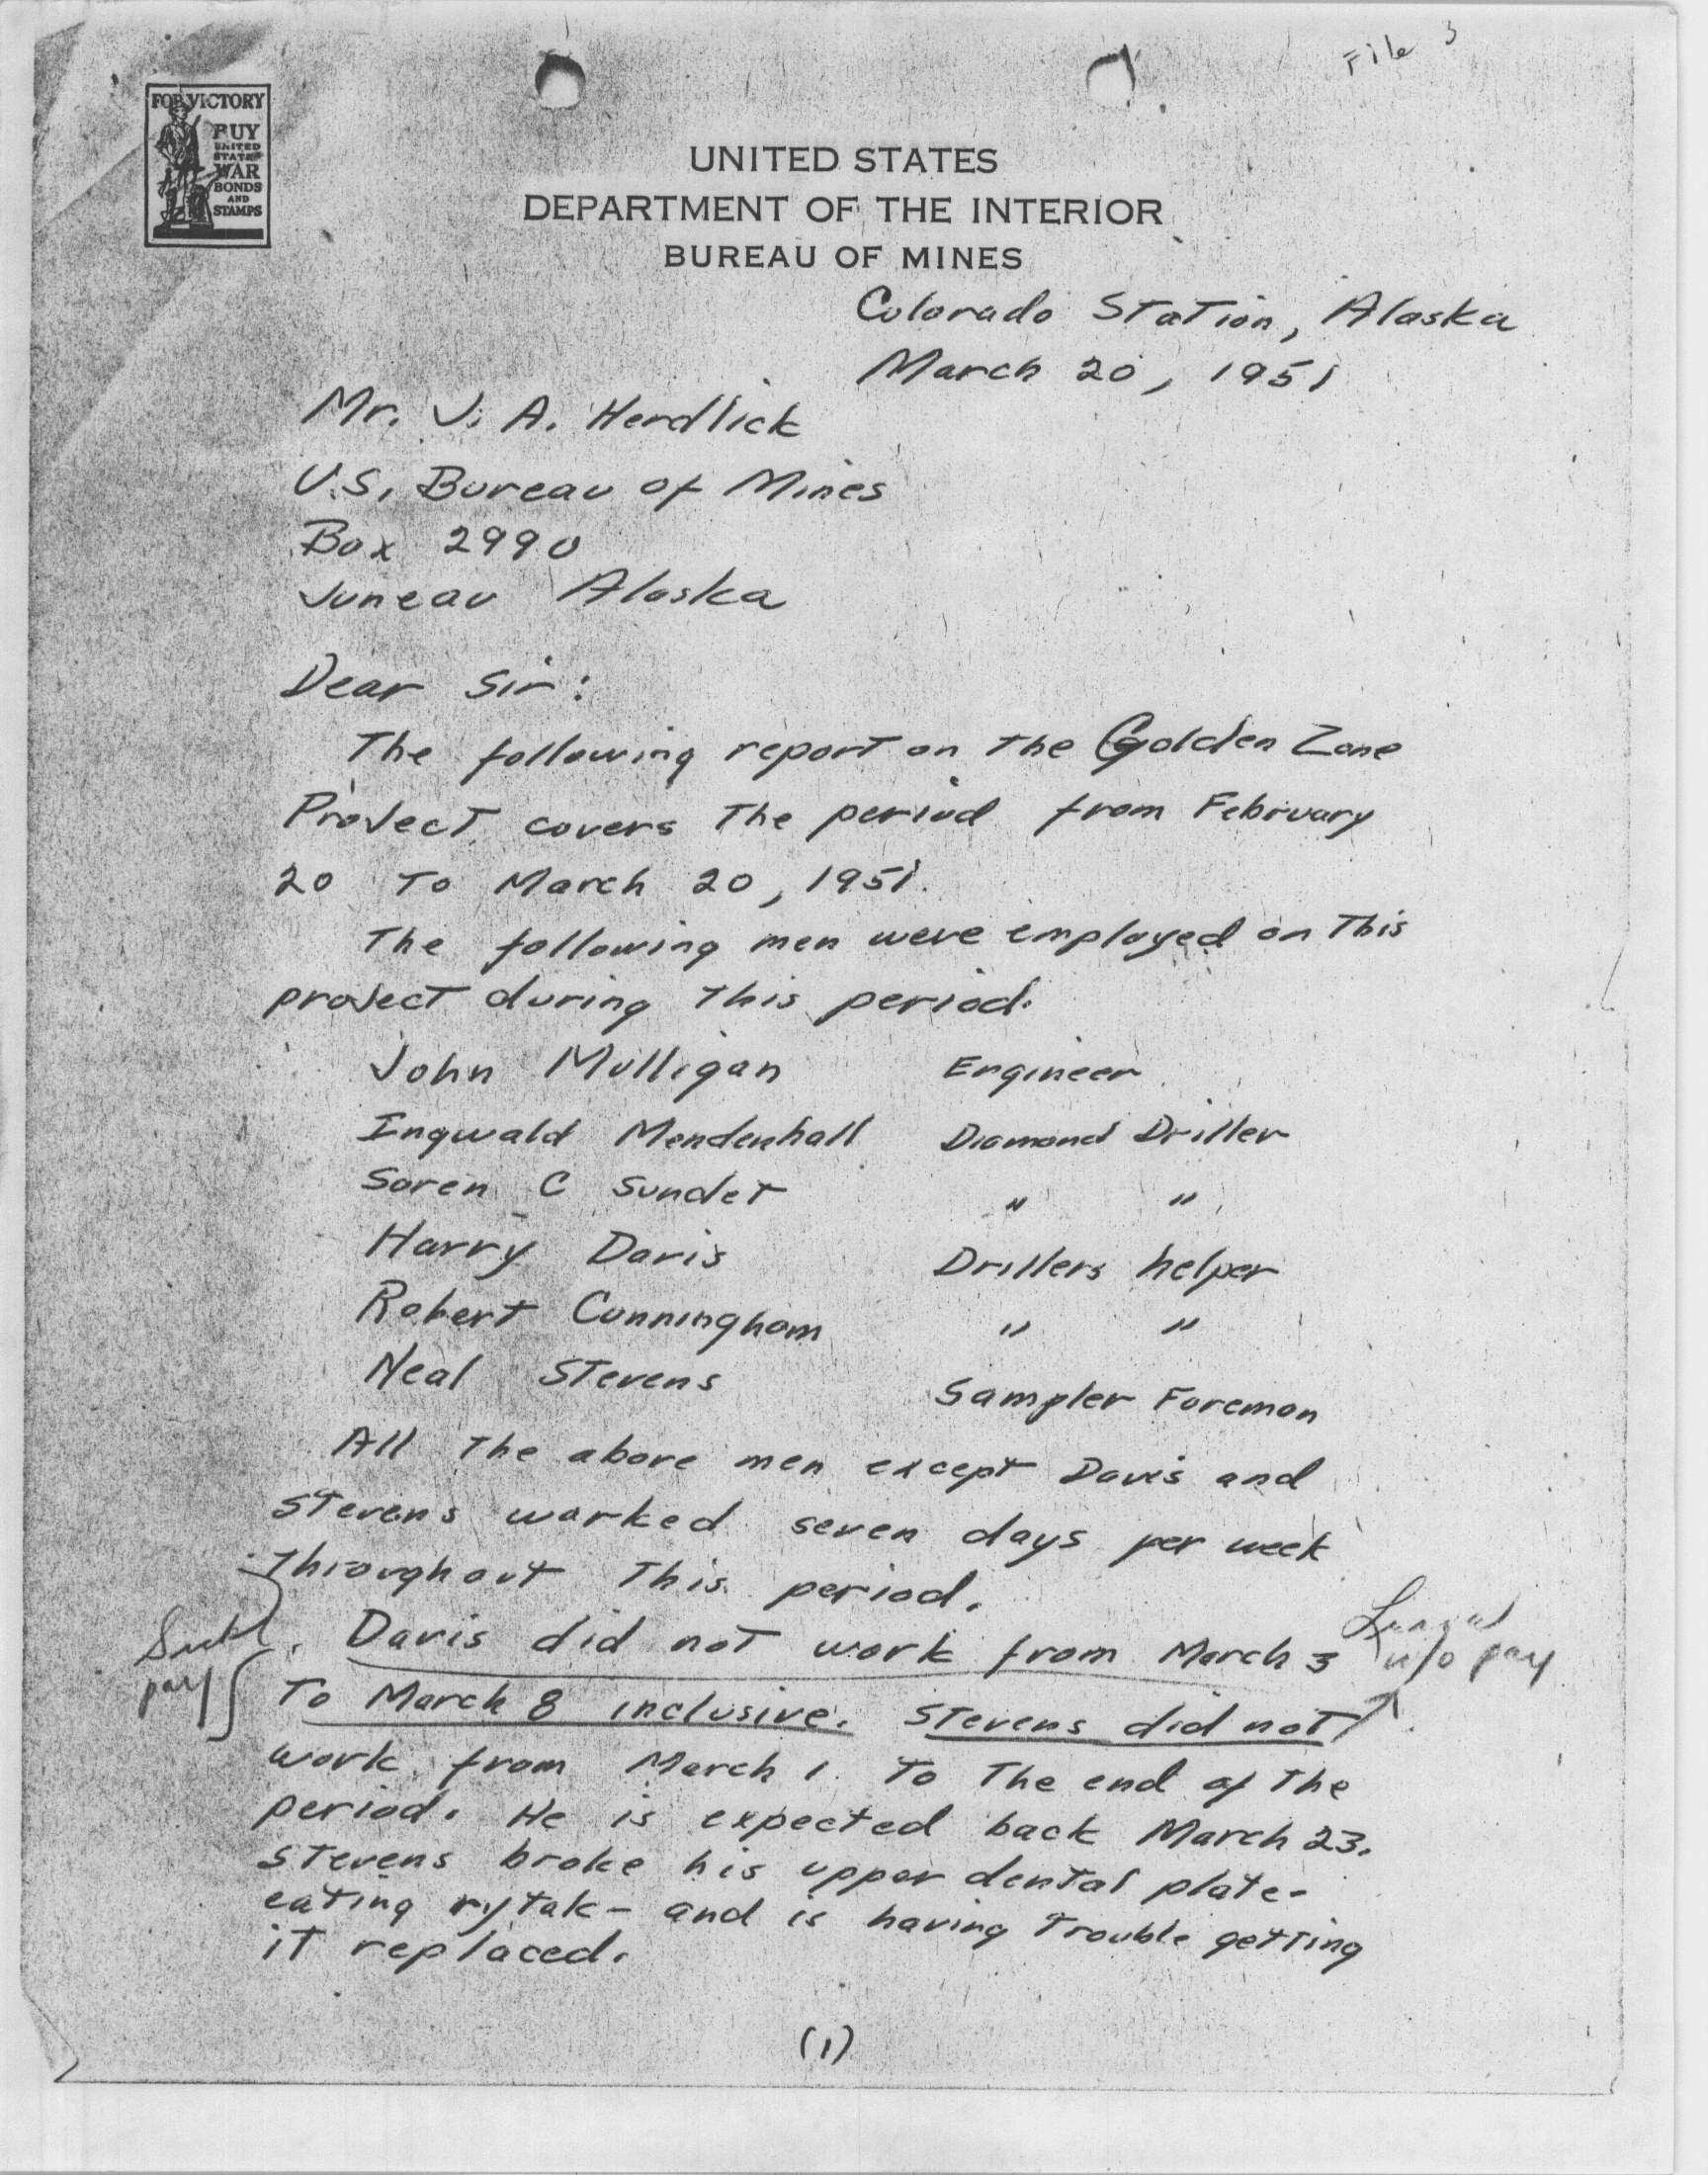 File 3
FOR VICTORY
BUY
UNITED
STATES
WAR
BONDS
AND
STAMPS
UNITED STATES
DEPARTMENT OF THE INTERIOR
BUREAU OF MINES
Colorado Station, Alaska
March 20, 1951
Mr. J. A. Herdlick
U.S. Bureau of Mines
Box 2990
Juneau Alaska
Dear Sir:
The following report on the Golden Zone
Project covers the period from February
20 to March 20, 1951.
The following men were employed on this
project during this period.
John Mulligan Engineer
Ingwald Mendenhall Diamond Driller
Soren C Sundet " "
Harry Davis Drillers helper
Robert Cunningham " "
Neal Stevens Sampler Foreman
All the above men except Davis and
Stevens worked seven days per week
throughout this period.
Davis did not work from March 3
w/o pay
pay
to March 8 inclusive. Stevens did not
work from March 1 to the end of the
period. He is expected back March 23.
Stevens broke his upper dental plate-
eating rytak - and is having trouble getting
it replaced.
(1)